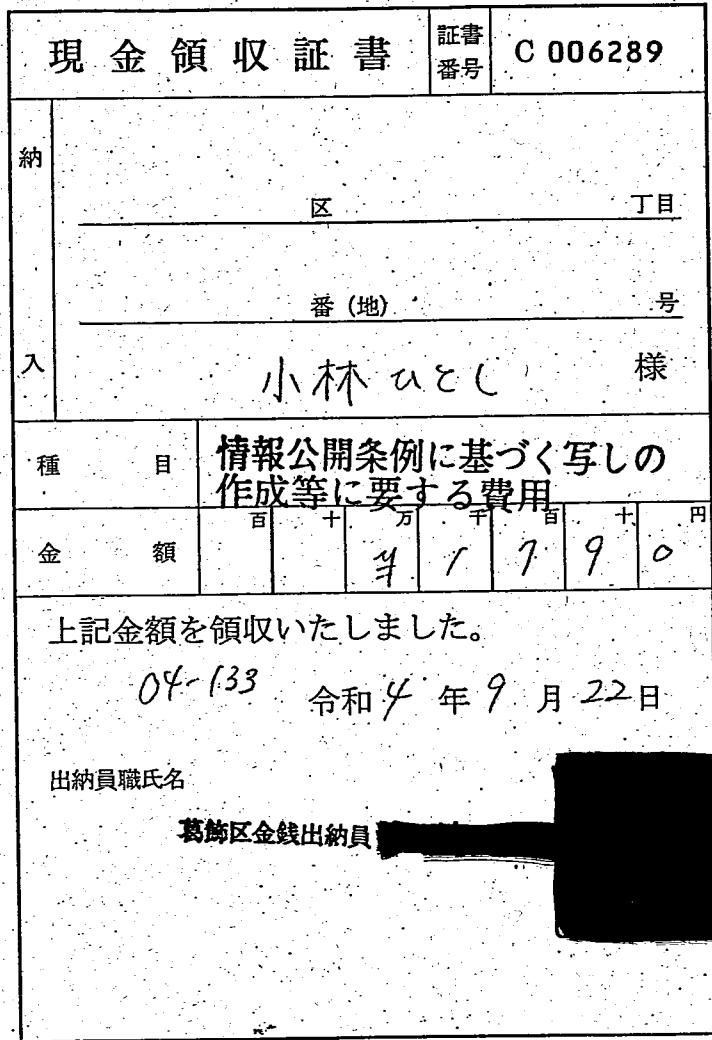 現金領収証書 証書番号 C 006289
納入
区 丁目
番(地) 号
小林ひとし 様
種目 情報公開条例に基づく写しの
作成等に要する費用
百 十 万 千 百 十 円
金額 ¥1790
上記金額を領収いたしました。
04-133 令和4年9月22日
出納員職氏名
葛飾区金銭出納員